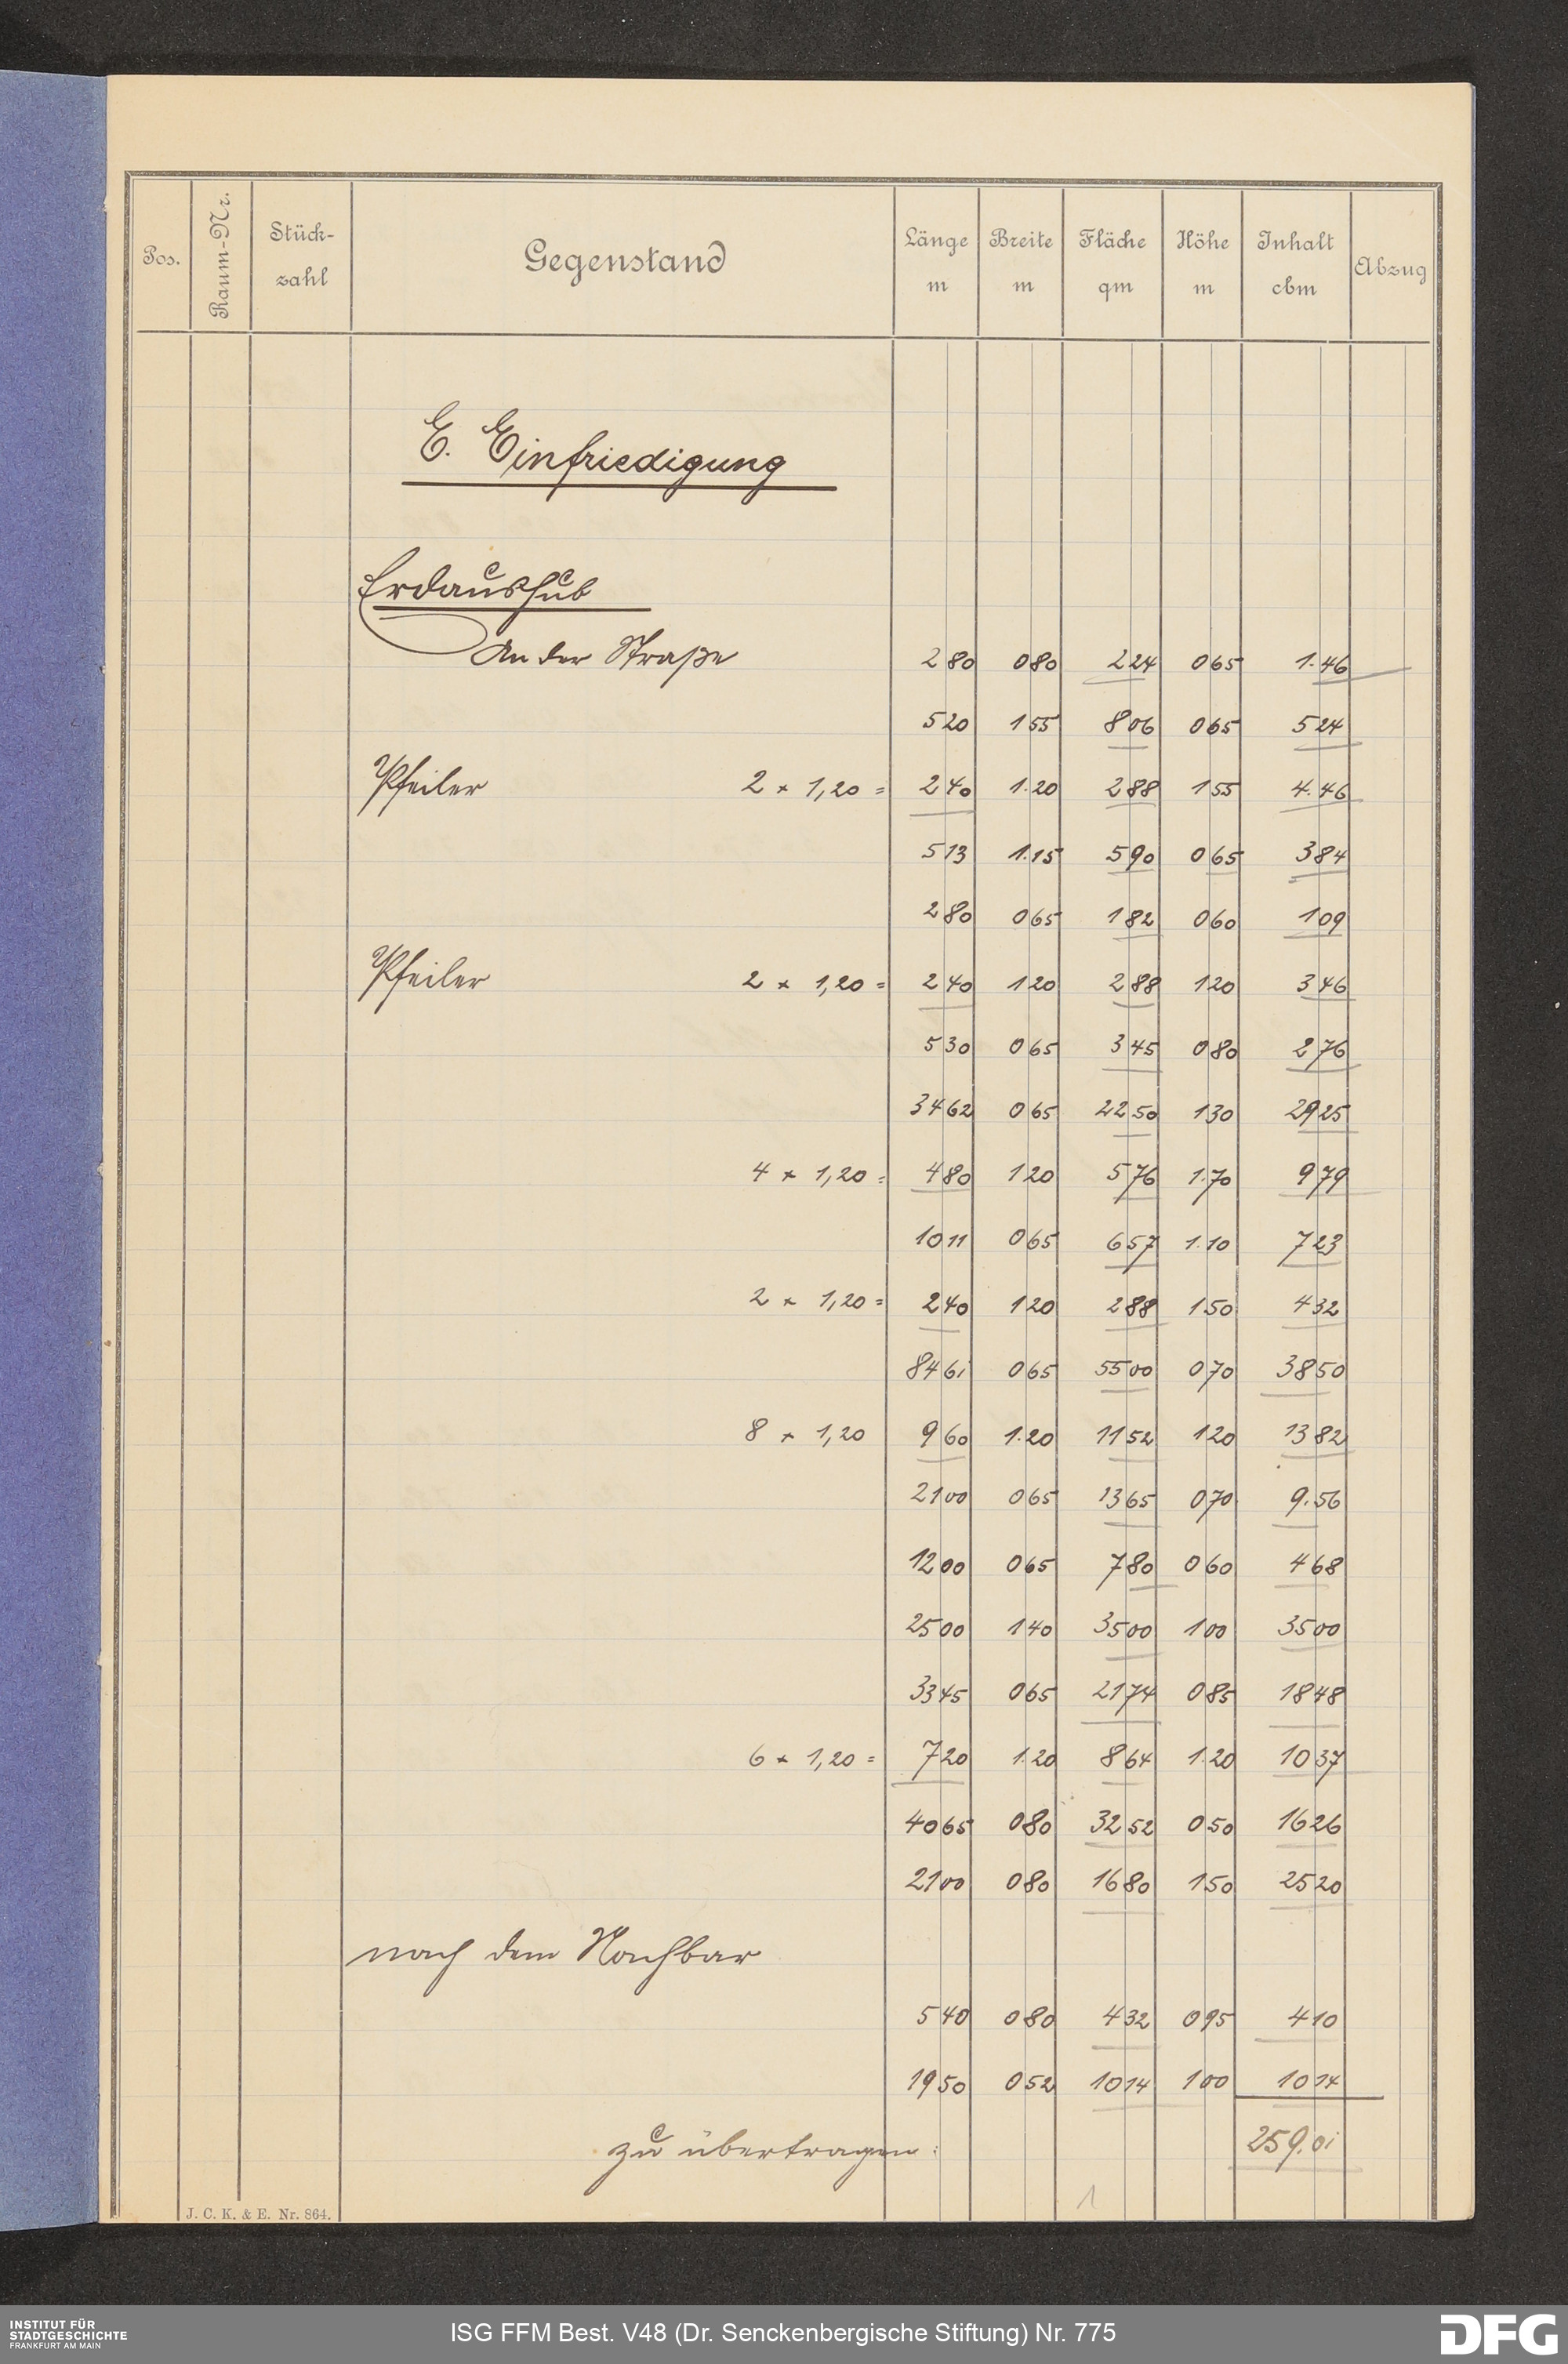 Pos. Raum-Nr. Stück-zahl Gegenstand Länge m Breite m Fläche qm Höhe m Inhalt cbm Abzug
E. Einfriedigung
Erdaushub
An der Straße 2 80 0 80 2 24 0 65 1.46
5 20 1 55 8 06 0 65 5 24
Pfeiler 2 × 1,20 = 2 40 1.20 2 88 1 55 4.46
5 13 1.15 5 90 0 65 3 84
2 80 0 65 1 82 0 60 1 09
Pfeiler 2 × 1,20 = 2 40 1 20 2 88 1 20 3 46
5 30 0 65 3 45 0 80 2 76
34 62 0 65 22 50 1 30 29 25
4 × 1,20 = 4 80 1 20 5 76 1.70 9 79
10 11 0 65 6 57 1.10 7 23
2 × 1,20 = 2 40 1 20 2 88 1 50 4 32
84 61 0 65 55 00 0 70 38 50
8 × 1,20 9 60 1.20 11 52 1 20 13 82
21 00 0 65 13 65 0 70 9.56
12 00 0 65 7 80 0 60 4 68
25 00 1 40 35 00 1 00 35 00
33 45 0 65 21 74 0 85 18 48
6 × 1,20 = 7 20 1.20 8 64 1.20 10 37
40 65 0 80 32 52 0 50 16 26
21 00 0 80 16 80 1 50 25 20
nach dem Nachbar
5 40 0 80 4 32 0 95 4 10
19 50 0 52 10 14 1 00 10 14
zu übertragen: 259.01
1
J. C. K. & E. Nr. 864.
INSTITUT FÜR
STADTGESCHICHTE
FRANKFURT AM MAIN
ISG FFM Best. V48 (Dr. Senckenbergische Stiftung) Nr. 775
DFG